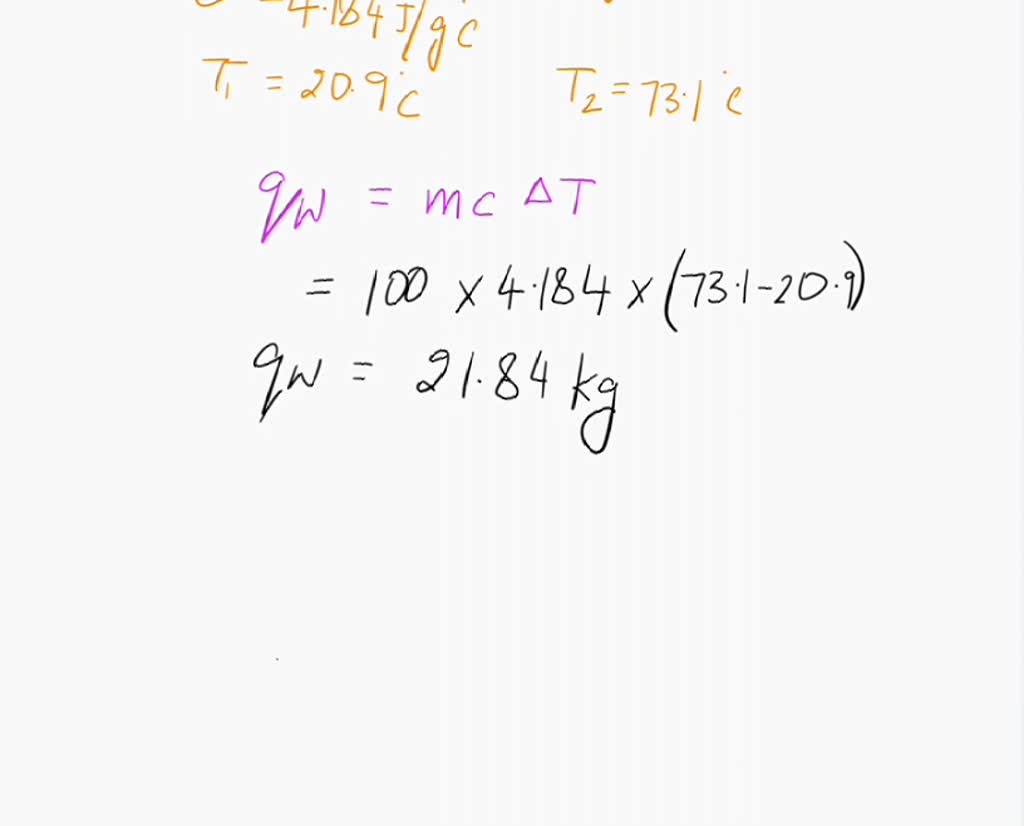 4.184 J/g c
T₁ = 20.9°c T₂ = 73.1°c
qw = mc ΔT
= 100 x 4.184 x (73.1-20.9)
qw = 21.84 kg